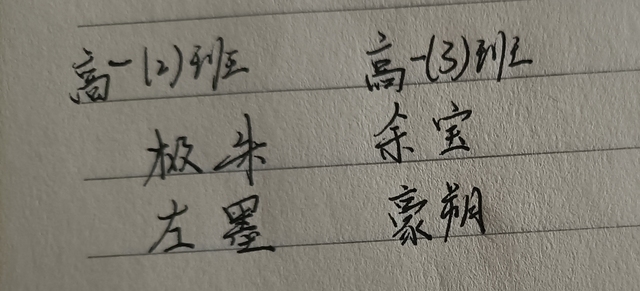 高一(2)班 高一(3)班
极朱 余宝
左墨 豪朔